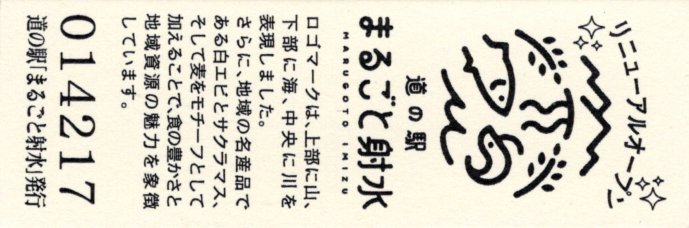 リニューアルオープン
道の駅
まるごと射水
MARUGOTO IMIZU
ロゴマークは、上部に山、
下部に海、中央に川を
表現しました。
さらに、地域の名産品で
ある白エビとサクラマス、
そして麦をモチーフとして
加えることで、食の豊かさと
地域資源の魅力を象徴
しています。
014217
道の駅「まるごと射水」発行